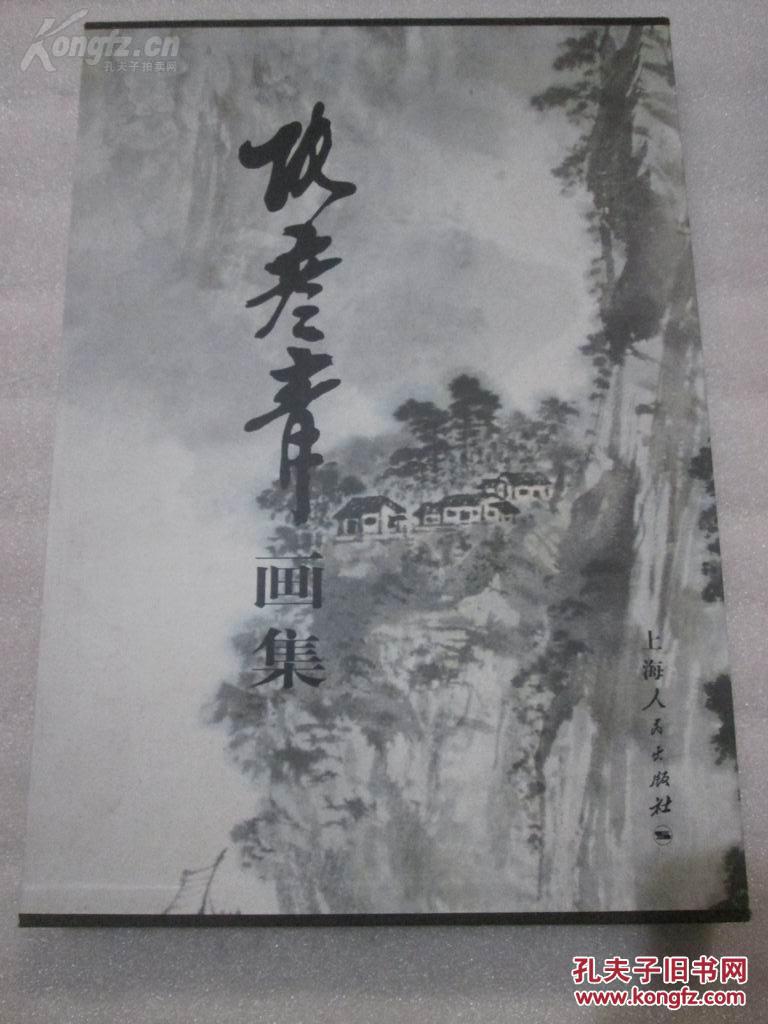 Kongfz.cn
孔夫子拍卖网
青
画集
上海人民出版社
孔夫子旧书网
www.kongfz.com